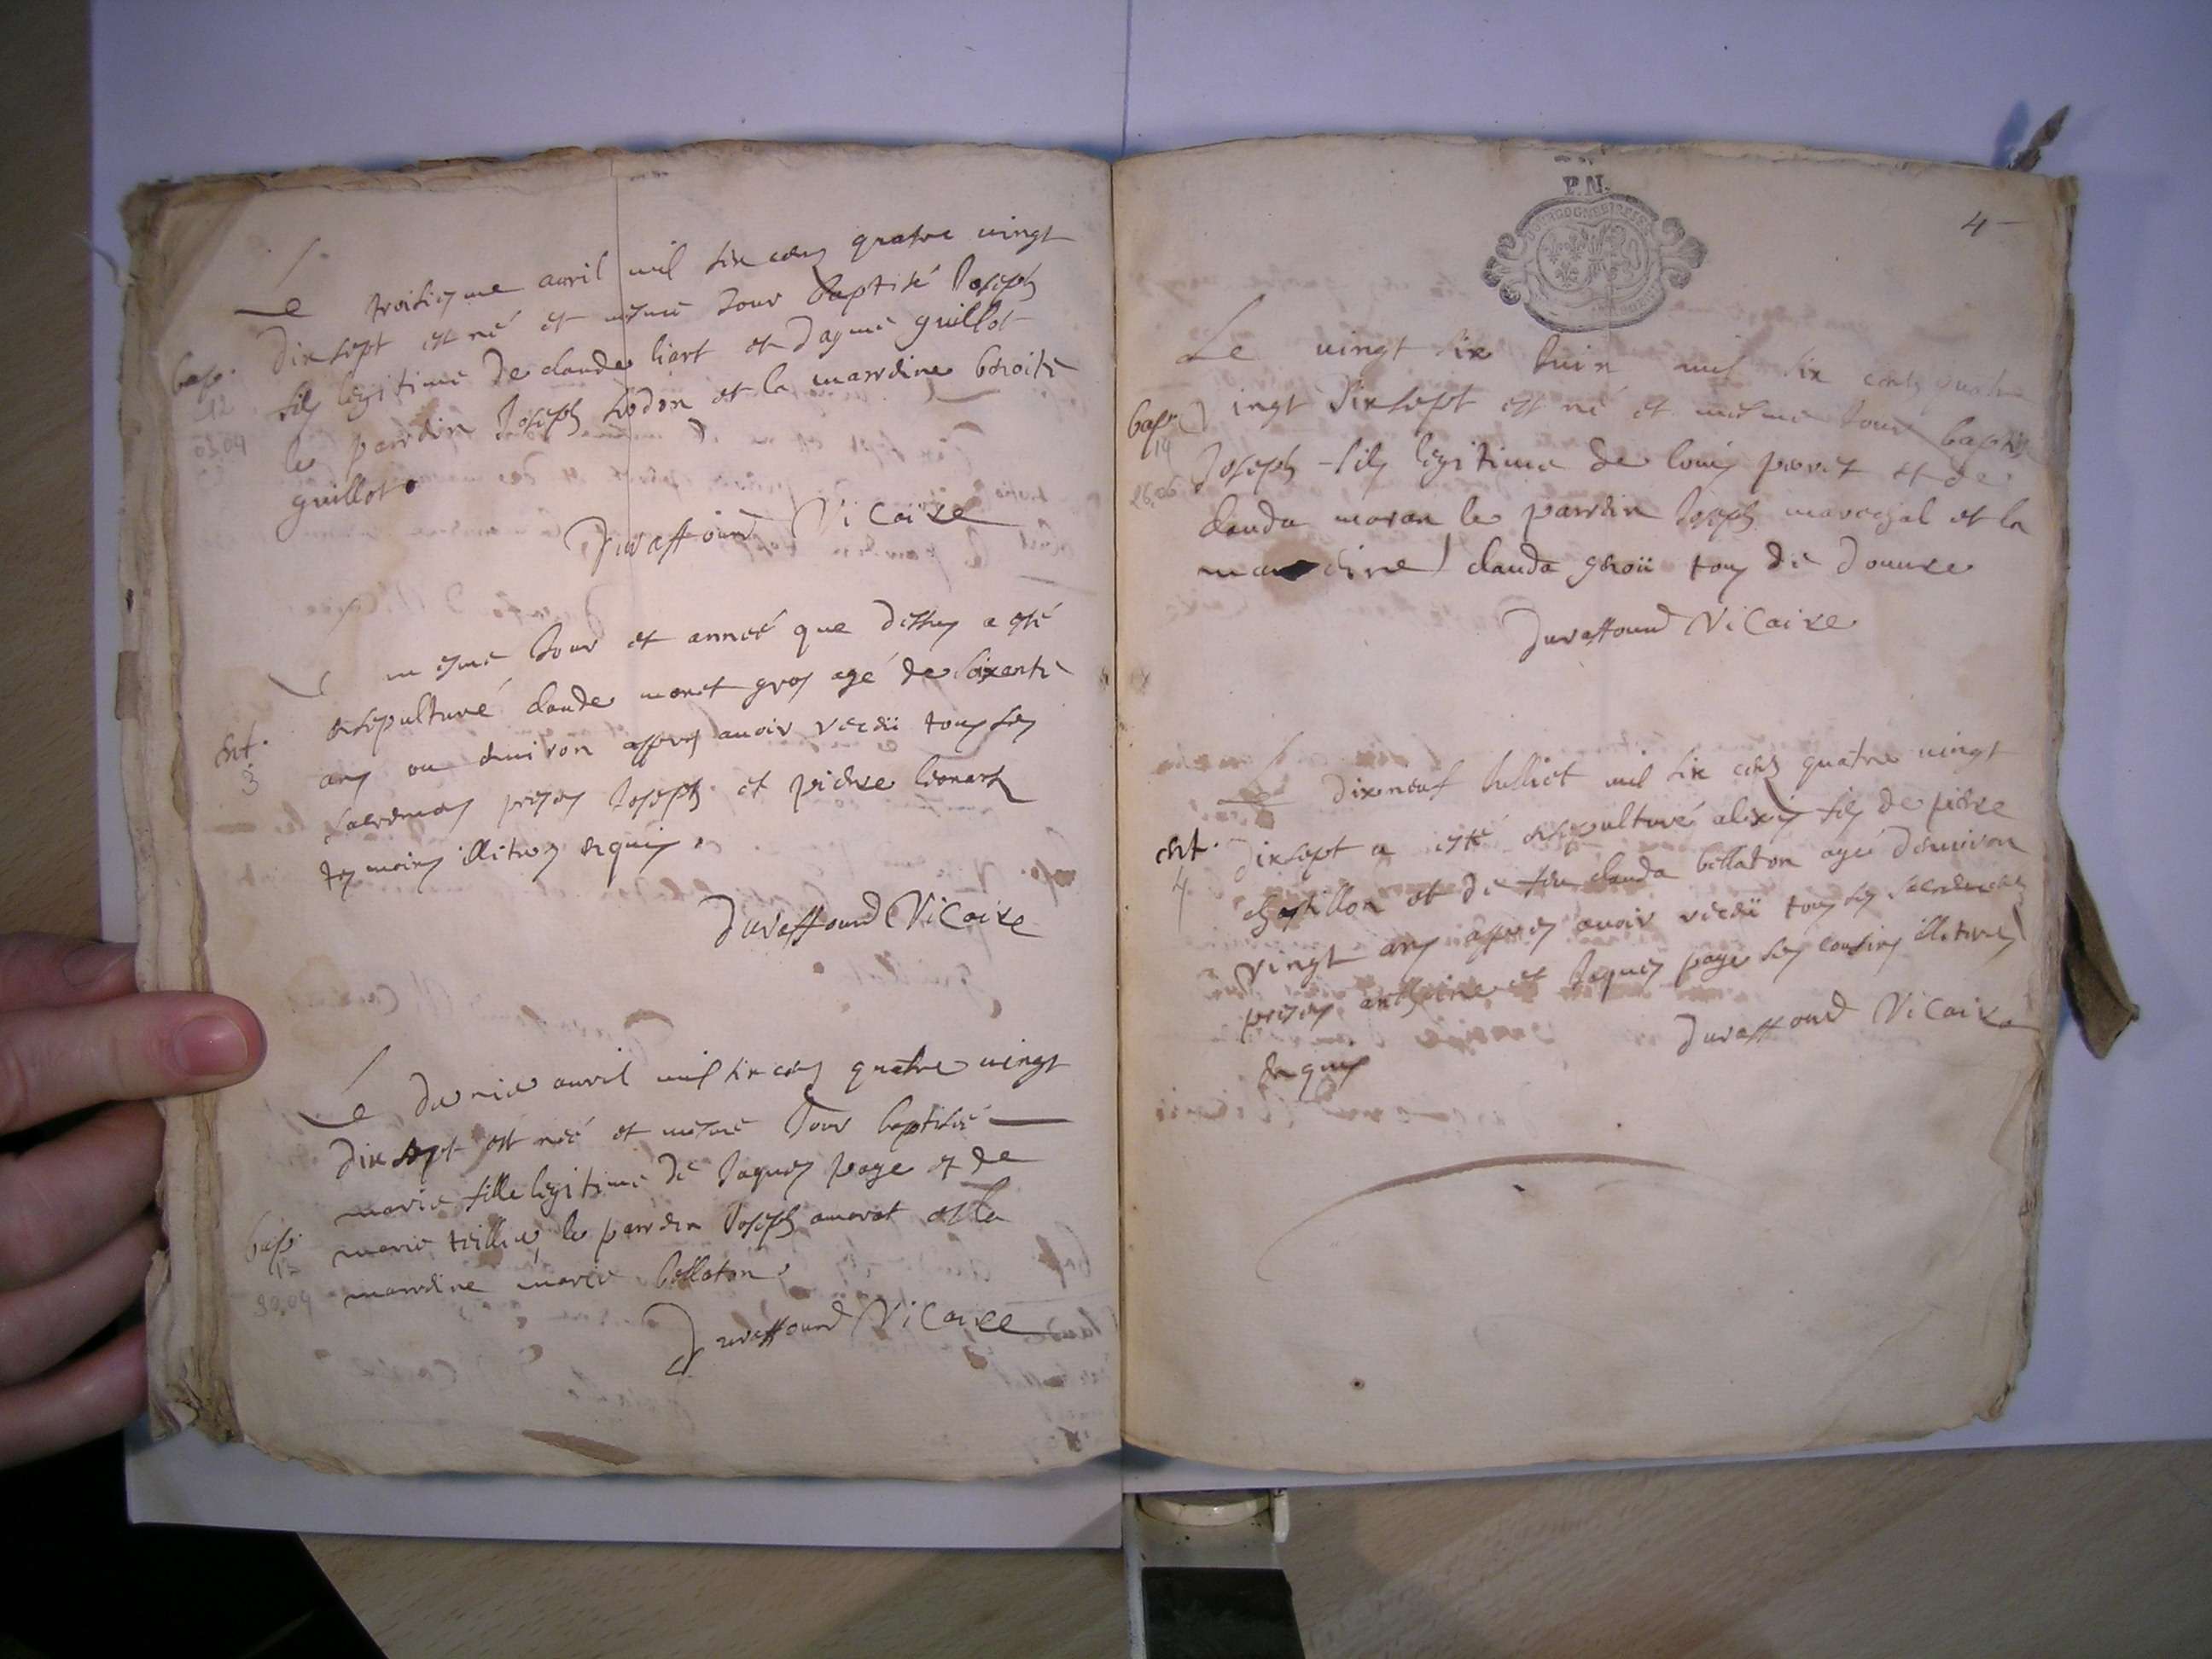 Le troisiesme auril mil six cens quatre uingt
dix sept est né et mesme Jour baptisé Joseph
bap.
12
03.04
fils legitime de claude liart et dagme guillot
le parrdin Joseph hodon et la marrdine benoite
guillot.
Duraffourd Vicaire
mesme Jour et anneé que dessus a esté
ensepulturé claude monet gros agé de soixante
ent.
3
ans ou enuiron appres auoir receü tous ses
sacremens presens Joseph et pierre lienart
tesmoins illitres enquis.
Duraffourd Vicaire
Le dernier auril mil six cens quatre uingt
dix sept est neé et mesme Jour baptiseé
marie fille legitime de Jaques page et de
bap.
13
30.04
marie teillier le parrdin Joseph amorat et la
marrdine marie bellaton.
Duraffourd Vicaire
P.N.
4
Le uingt six Juin mil six cens quatre
uingt dixsept est né et mesme Jour baptisé
bap.
14
26.06
Joseph fils legitime de louis poret et de
clauda moran le parrdin Joseph marechal et la
marrdine clauda geroü tous de
Duraffourd Vicaire
dixneuf Julliet mil six cens quatre uingt
ent.
4
dixsept a esté ensepulturé alexis fils de pierre
chastillon et de feu clauda bellaton agé denuiron
vingt ans appres auoir receü tous ses sacremens
presens anthoine et Jaques page ses cousins illitres
enquis
Duraffourd Vicaire